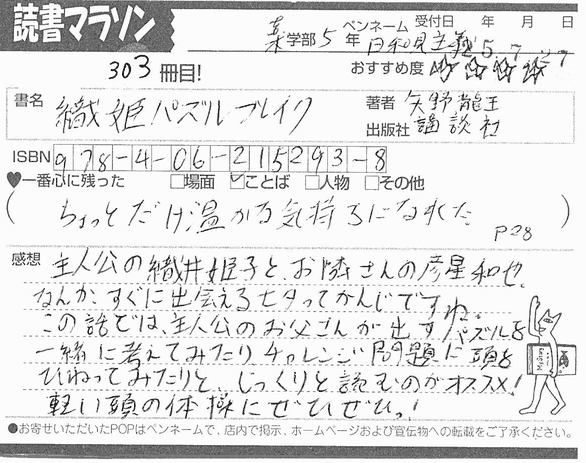 読書マラソン
薬学部5年 ペンネーム 日和見主義 受付日 年 月 日
5. 7. 27
303冊目! おすすめ度
書名 織姫パズルブレイク
著者 矢野龍王
出版社 講談社
ISBN 978-4-06-215293-8
♥一番心に残った □場面 ☑ことば □人物 □その他
(ちょっとだけ温かな気持ちになれた P28
感想 主人公の織井姫子と、お隣さんの彦星和也。
なんか、すぐに出会える七夕ってかんじですね。
この話では、主人公のお父さんが出すパズルを
一緒に考えてみたりチャレンジ問題に頭を
ひねってみたりと、じっくりと読むのがオススメ!
軽い頭の体操にぜひぜひっ!
●お寄せいただいたPOPはペンネームで、店内で掲示、ホームページおよび宣伝物への転載をご了承ください。